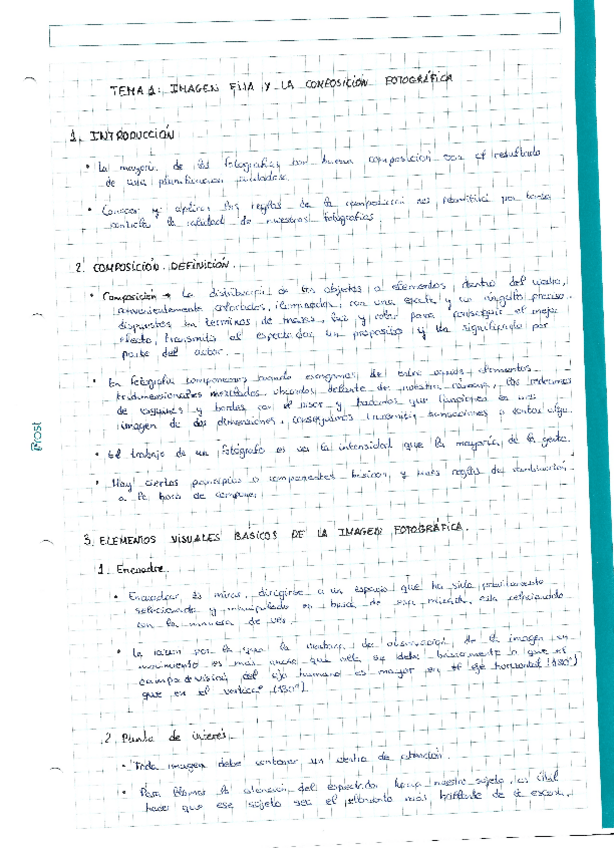 TEMA 1: IMAGEN FIJA Y LA COMPOSICIÓN FOTOGRÁFICA
1. INTRODUCCIÓN
• La mayoría de las fotografías con buena composición son el resultado
de una planificación cuidadosa.
• Conocer y aplicar las reglas de la composición nos
la calidad de nuestras fotografías.
2. COMPOSICIÓN. DEFINICIÓN.
• Composición → La distribución de los objetos o elementos dentro del cuadro,
convenientemente iluminados, con una y un ángulo preciso,
dispuestos en términos de masas, luz y color para conseguir el mejor
efecto, transmitir al espectador un propósito y un significado por
parte del autor.
• En fotografía componemos cuando escogemos de entre elementos
tridimensionales mezclados delante de nuestra cámara, los
y bordes con el visor y hacemos que en una
imagen de dos dimensiones, consigamos transmitir sensaciones o contar algo.
• El trabajo de un fotógrafo es ver con la intensidad que la mayoría de la gente.
• Hay ciertos principios o componentes básicos, y unas reglas de
a la hora de componer.
3. ELEMENTOS VISUALES BÁSICOS DE LA IMAGEN FOTOGRÁFICA.
1. Encuadre.
• Encuadrar es mirar, dirigirse a un espacio que ha sido previamente
seleccionado y manipulado en base de esa mirada, está relacionado
con la manera de ver.
• La razón por la que la ventana de observación de la imagen en
movimiento es más ancha que alta se debe básicamente a que el
campo de visión del ojo humano es mayor en el eje horizontal (180º)
que en el vertical
2. Punto de interés.
• Toda imagen debe contener un centro de atención.
• Para llamar la atención del espectador hacia nuestro sujeto, es vital
hacer que ese sujeto sea el elemento más brillante de la escena.
Prost